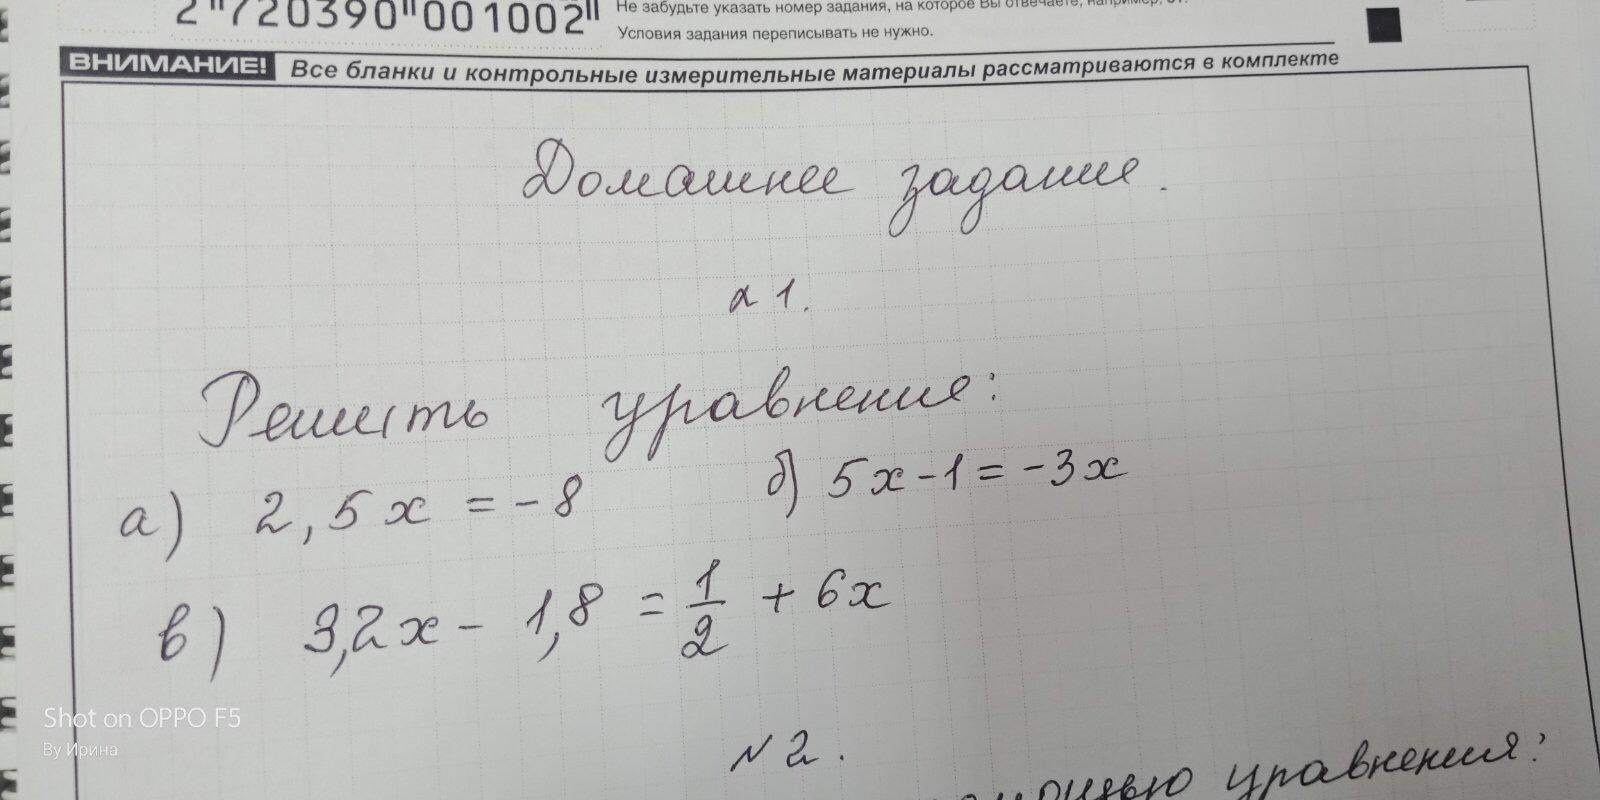 2"720390"001002"
Не забудьте указать номер задания, на которое Вы отвечаете, например, 31.
Условия задания переписывать не нужно.
ВНИМАНИЕ! Все бланки и контрольные измерительные материалы рассматриваются в комплекте
Домашнее задание.
№1.
Решить уравнение:
а) 2,5x = -8 б) 5x-1 = -3x
в) 3,2x - 1,8 = 1/2 + 6x
№2.
уравнения:
Shot on OPPO F5
By Ирина